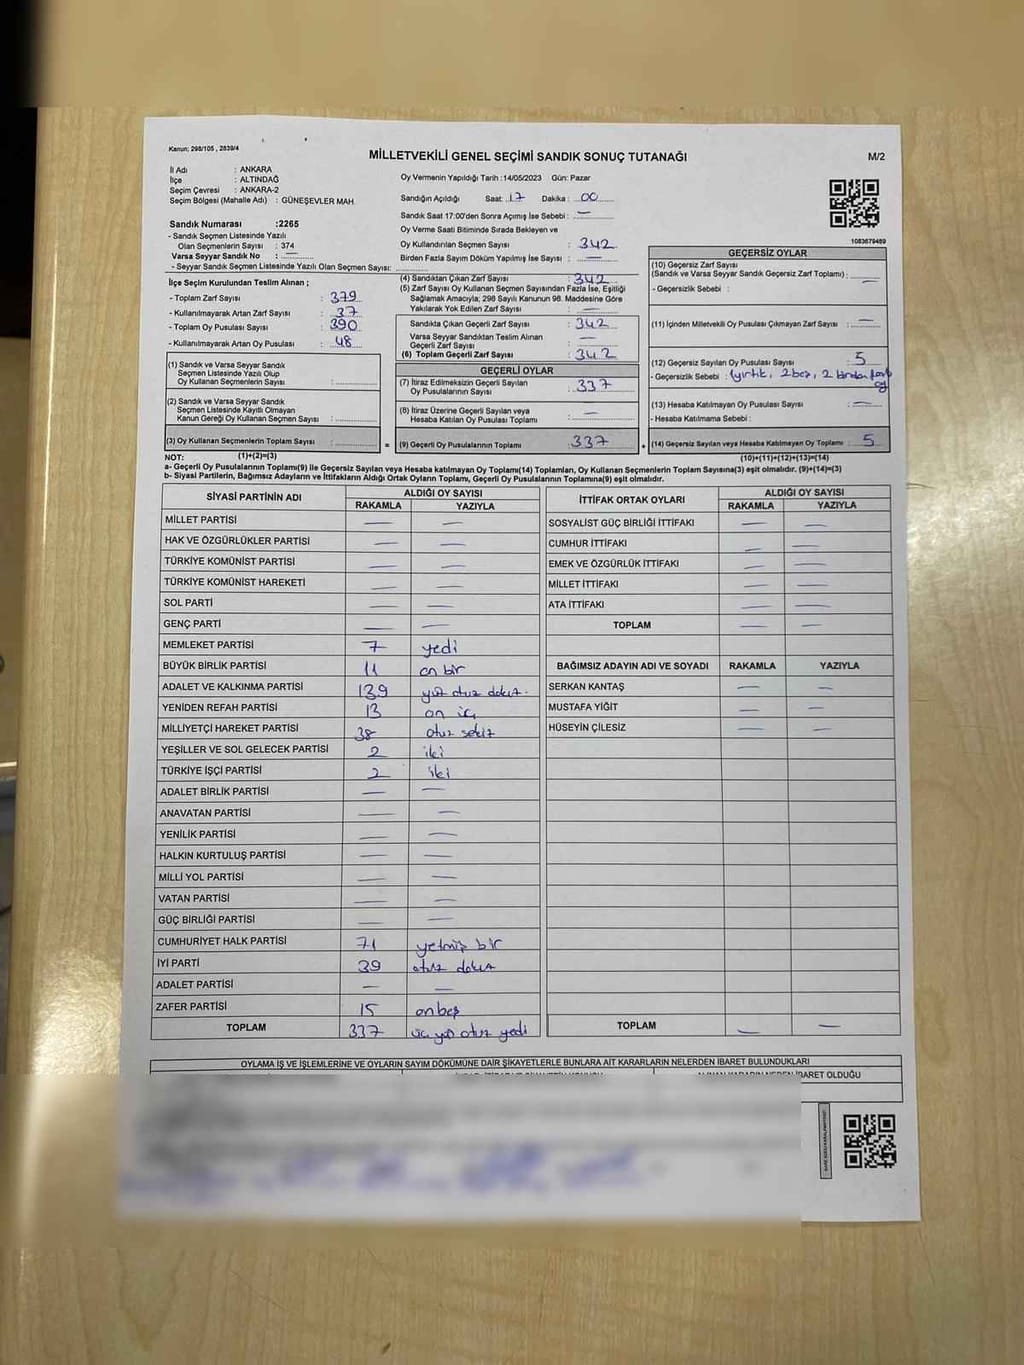 Kanun: 298/105 , 2839/4
MİLLETVEKİLİ GENEL SEÇİMİ SANDIK SONUÇ TUTANAĞI
M/2
İl Adı : ANKARA
İlçe : ALTINDAĞ
Seçim Çevresi : ANKARA-2
Seçim Bölgesi (Mahalle Adı) : GÜNEŞEVLER MAH.
Sandık Numarası :2265
- Sandık Seçmen Listesinde Yazılı
Olan Seçmenlerin Sayısı : 374
Varsa Seyyar Sandık No : —
- Seyyar Sandık Seçmen Listesinde Yazılı Olan Seçmen Sayısı:
Oy Vermenin Yapıldığı Tarih :14/05/2023 Gün: Pazar
Sandığın Açıldığı Saat: 17 Dakika : 00
Sandık Saat 17:00'den Sonra Açımış İse Sebebi : —
Oy Verme Saati Bitiminde Sırada Bekleyen ve
Oy Kullandırılan Seçmen Sayısı : 342
Birden Fazla Sayım Döküm Yapılmış İse Sayısı : —
1083679469
İlçe Seçim Kurulundan Teslim Alınan ;
- Toplam Zarf Sayısı : 379
- Kullanılmayarak Artan Zarf Sayısı : 37
- Toplam Oy Pusulası Sayısı : 390
- Kullanılmayarak Artan Oy Pusulası : 48
(1) Sandık ve Varsa Seyyar Sandık
Seçmen Listesinde Yazılı Olup
Oy Kullanan Seçmenlerin Sayısı :
(2) Sandık ve Varsa Seyyar Sandık
Seçmen Listesinde Kayıtlı Olmayan
Kanun Gereği Oy Kullanan Seçmen Sayısı :
(3) Oy Kullanan Seçmenlerin Toplam Sayısı :
(4) Sandıktan Çıkan Zarf Sayısı : 342
(5) Zarf Sayısı Oy Kullanan Seçmen Sayısından Fazla İse, Eşitliği
Sağlamak Amacıyla; 298 Sayılı Kanunun 98. Maddesine Göre
Yakılarak Yok Edilen Zarf Sayısı : —
Sandıkta Çıkan Geçerli Zarf Sayısı : 342
Varsa Seyyar Sandıktan Teslim Alınan
Geçerli Zarf Sayısı : —
(6) Toplam Geçerli Zarf Sayısı : 342
GEÇERLİ OYLAR
(7) İtiraz Edilmeksizin Geçerli Sayılan
Oy Pusulalarının Sayısı : 337
(8) İtiraz Üzerine Geçerli Sayılan veya
Hesaba Katılan Oy Pusulası Toplamı : —
= (9) Geçerli Oy Pusulalarının Toplamı : 337
GEÇERSİZ OYLAR
(10) Geçersiz Zarf Sayısı
(Sandık ve Varsa Seyyar Sandık Geçersiz Zarf Toplamı) : —
- Geçersizlik Sebebi :
(11) İçinden Milletvekili Oy Pusulası Çıkmayan Zarf Sayısı : —
(12) Geçersiz Sayılan Oy Pusulası Sayısı : 5
- Geçersizlik Sebebi : 1yırtık, 2 boş, 2 birden fazla
oy
(13) Hesaba Katılmayan Oy Pusulası Sayısı : —
- Hesaba Katılmama Sebebi :
+ (14) Geçersiz Sayılan veya Hesaba Katılmayan Oy Toplamı : 5
NOT: (1)+(2)=(3)
(10)+(11)+(12)+(13)=(14)
a- Geçerli Oy Pusulalarının Toplamı(9) ile Geçersiz Sayılan veya Hesaba katılmayan Oy Toplamı(14) Toplamları, Oy Kullanan Seçmenlerin Toplam Sayısına(3) eşit olmalıdır. (9)+(14)=(3)
b- Siyasi Partilerin, Bağımsız Adayların ve İttifakların Aldığı Ortak Oyların Toplamı, Geçerli Oy Pusulalarının Toplamına(9) eşit olmalıdır.
SİYASİ PARTİNİN ADI ALDIĞI OY SAYISI
RAKAMLA YAZIYLA
MİLLET PARTİSİ — —
HAK VE ÖZGÜRLÜKLER PARTİSİ — —
TÜRKİYE KOMÜNİST PARTİSİ — —
TÜRKİYE KOMÜNİST HAREKETİ — —
SOL PARTİ — —
GENÇ PARTİ — —
MEMLEKET PARTİSİ 7 yedi
BÜYÜK BİRLİK PARTİSİ 11 on bir
ADALET VE KALKINMA PARTİSİ 139 yüz otuz dokuz
YENİDEN REFAH PARTİSİ 13 on üç
MİLLİYETÇİ HAREKET PARTİSİ 38 otuz sekiz
YEŞİLLER VE SOL GELECEK PARTİSİ 2 iki
TÜRKİYE İŞÇİ PARTİSİ 2 iki
ADALET BİRLİK PARTİSİ — —
ANAVATAN PARTİSİ — —
YENİLİK PARTİSİ — —
HALKIN KURTULUŞ PARTİSİ — —
MİLLİ YOL PARTİSİ — —
VATAN PARTİSİ — —
GÜÇ BİRLİĞİ PARTİSİ — —
CUMHURİYET HALK PARTİSİ 71 yetmiş bir
İYİ PARTİ 39 otuz dokuz
ADALET PARTİSİ — —
ZAFER PARTİSİ 15 on beş
TOPLAM 337 üç yüz otuz yedi
İTTİFAK ORTAK OYLARI ALDIĞI OY SAYISI
RAKAMLA YAZIYLA
SOSYALİST GÜÇ BİRLİĞİ İTTİFAKI — —
CUMHUR İTTİFAKI — —
EMEK VE ÖZGÜRLÜK İTTİFAKI — —
MİLLET İTTİFAKI — —
ATA İTTİFAKI — —
TOPLAM — —
BAĞIMSIZ ADAYIN ADI VE SOYADI RAKAMLA YAZIYLA
SERKAN KANTAŞ — —
MUSTAFA YİĞİT — —
HÜSEYİN ÇİLESİZ — —
TOPLAM — —
OYLAMA İŞ VE İŞLEMLERİNE VE OYLARIN SAYIM DÖKÜMÜNE DAİR ŞİKAYETLERLE BUNLARA AİT KARARLARIN NELERDEN İBARET BULUNDUKLARI
İBARET OLDUĞU